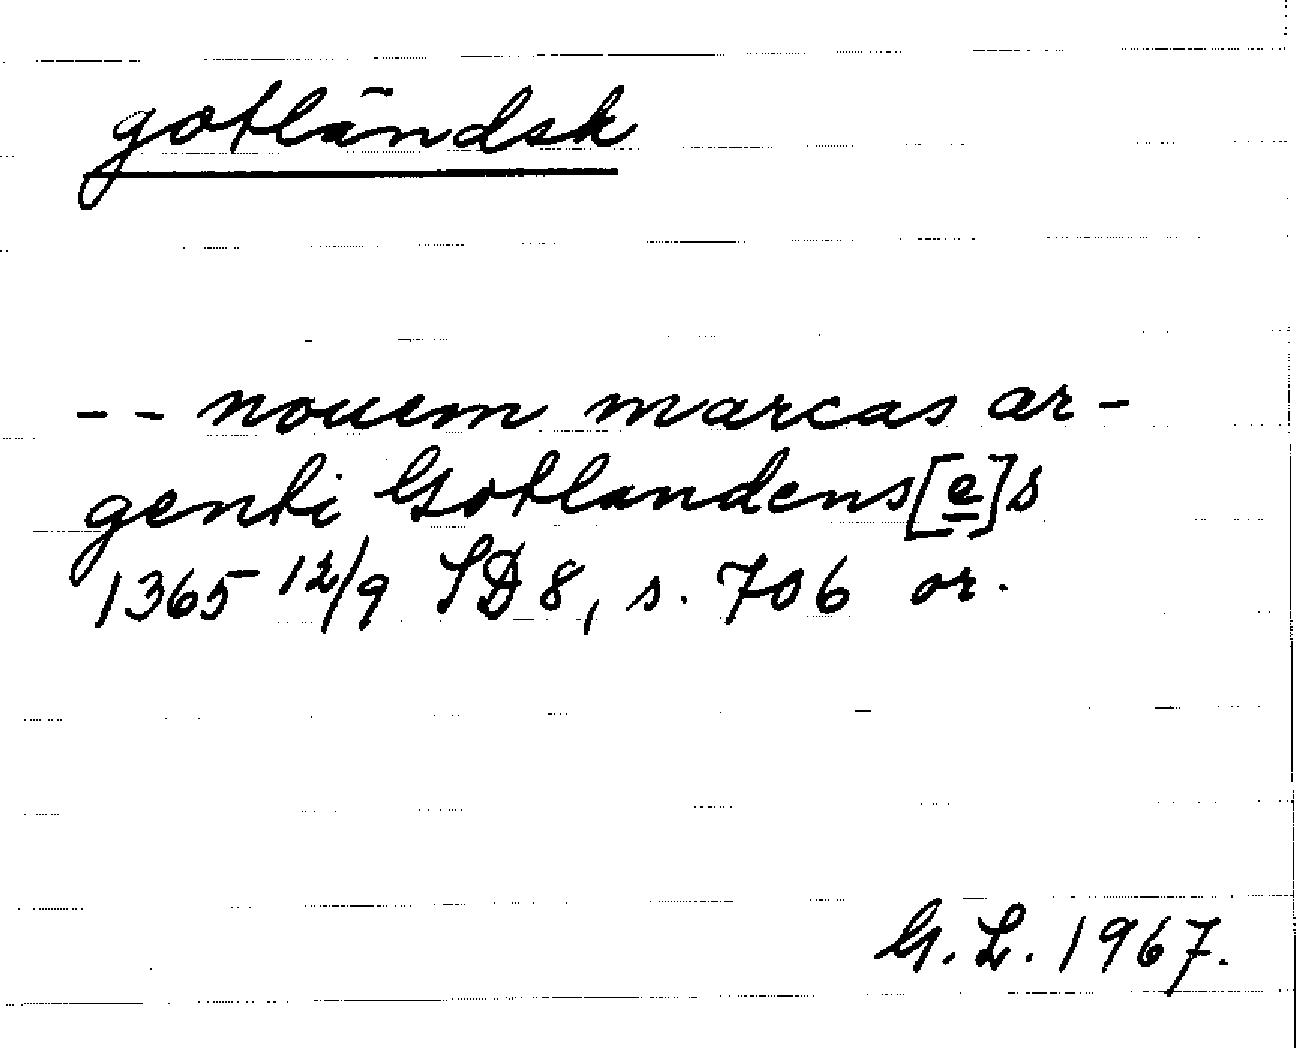 gotländsk
-- nouem marcas ar-
genti Gotlandens[e]s
1365 12/9 SD 8, s. 706 or.
G. L. 1967.